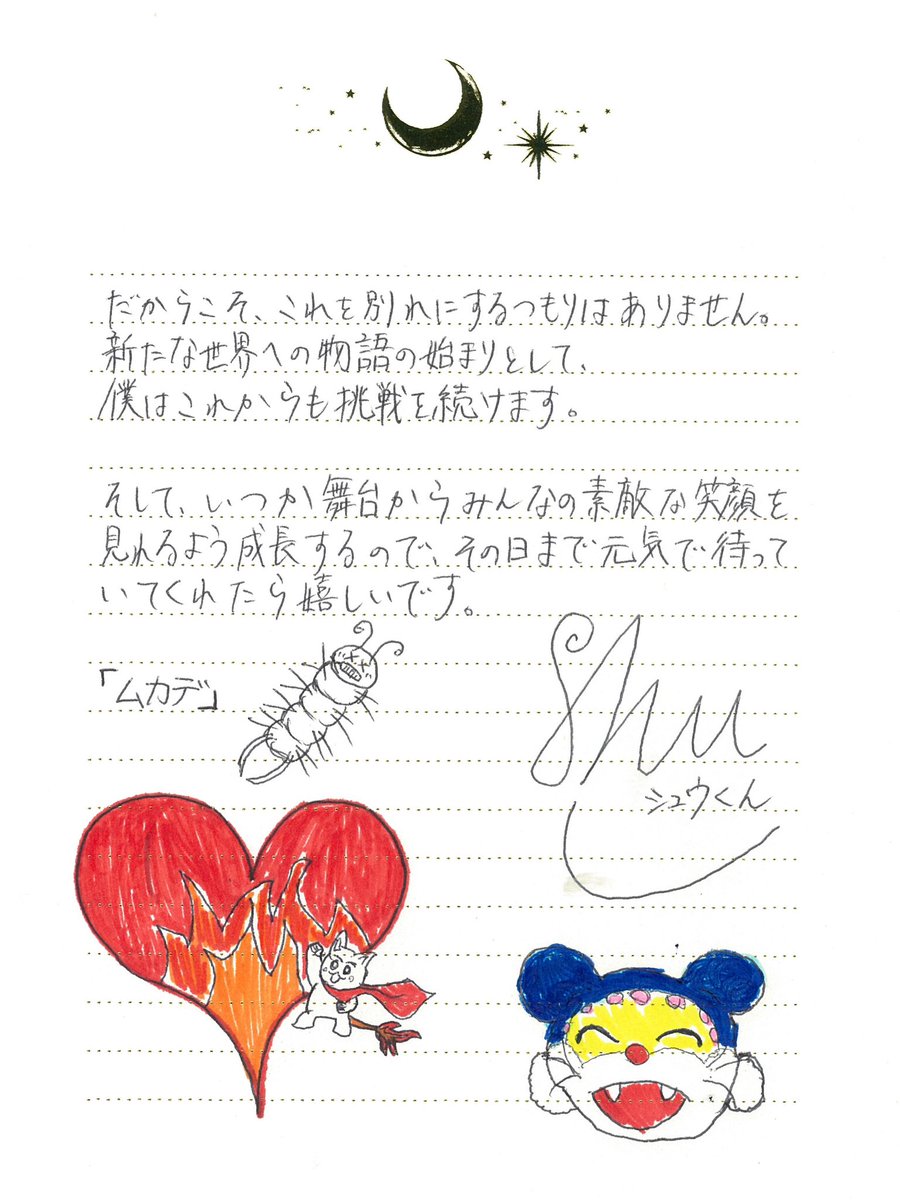 だからこそ、これを別れにするつもりはありません。
新たな世界への物語の始まりとして、
僕はこれからも挑戦を続けます。
そして、いつか舞台からみんなの素敵な笑顔を
見れるよう成長するので、その日まで元気で待って
いてくれたら嬉しいです。
「ムカデ」
Shu
シュウくん